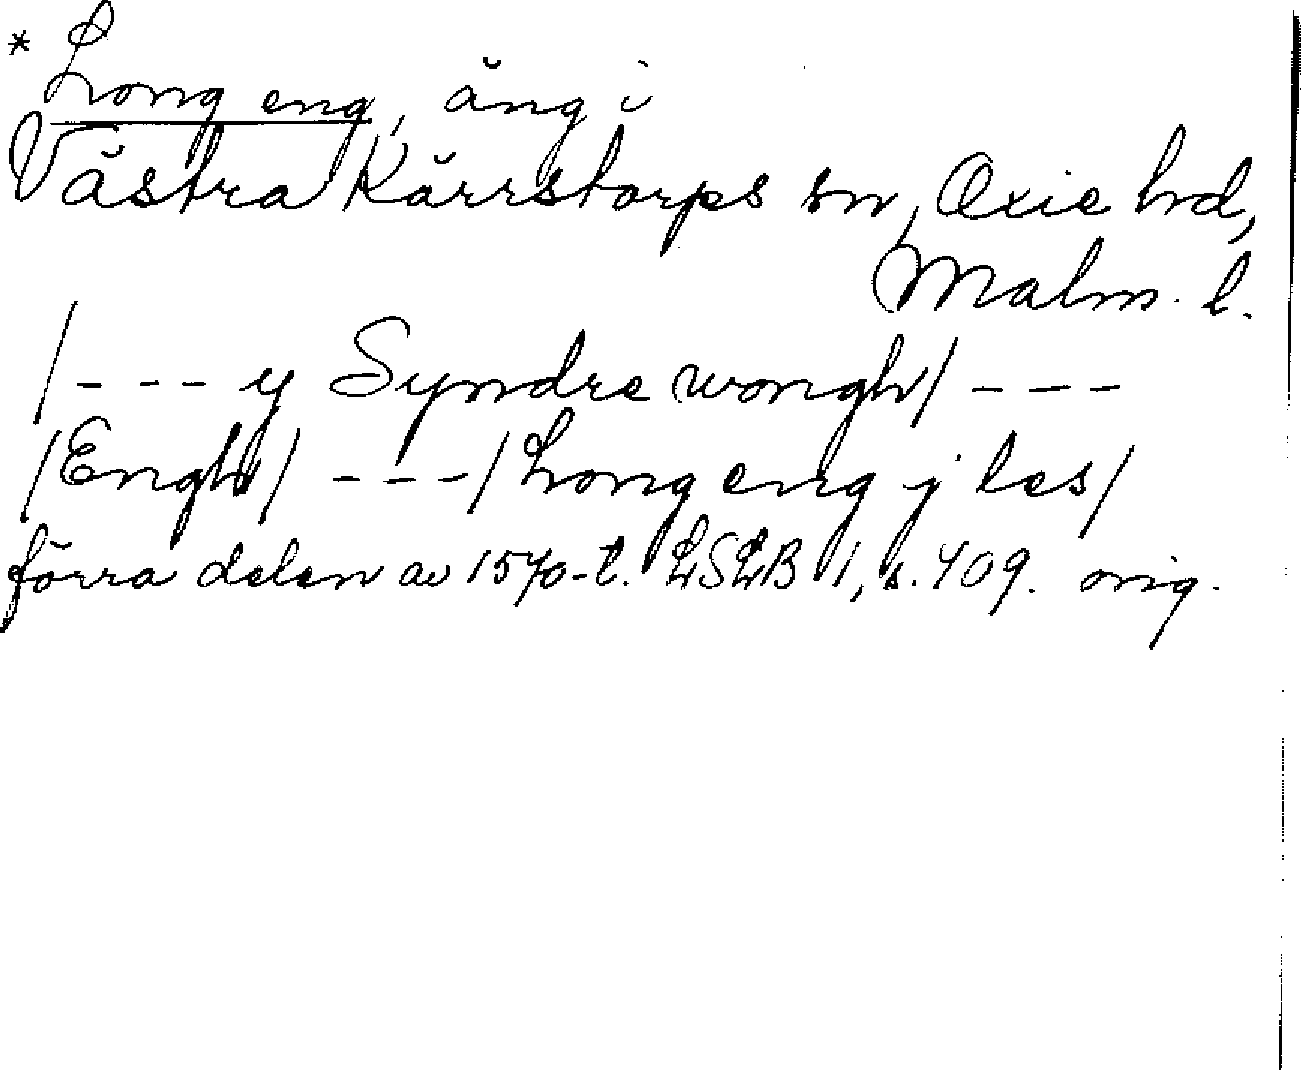 * Long eng, äng i
Västra Kärrstorps sn, Oxie hd,
Malm. l.
/--- y Syndre wongh/ ---
/Engh/ ---/Long eng j les/
förra delen av 1570-t. LSLB 1, s. 409. orig.